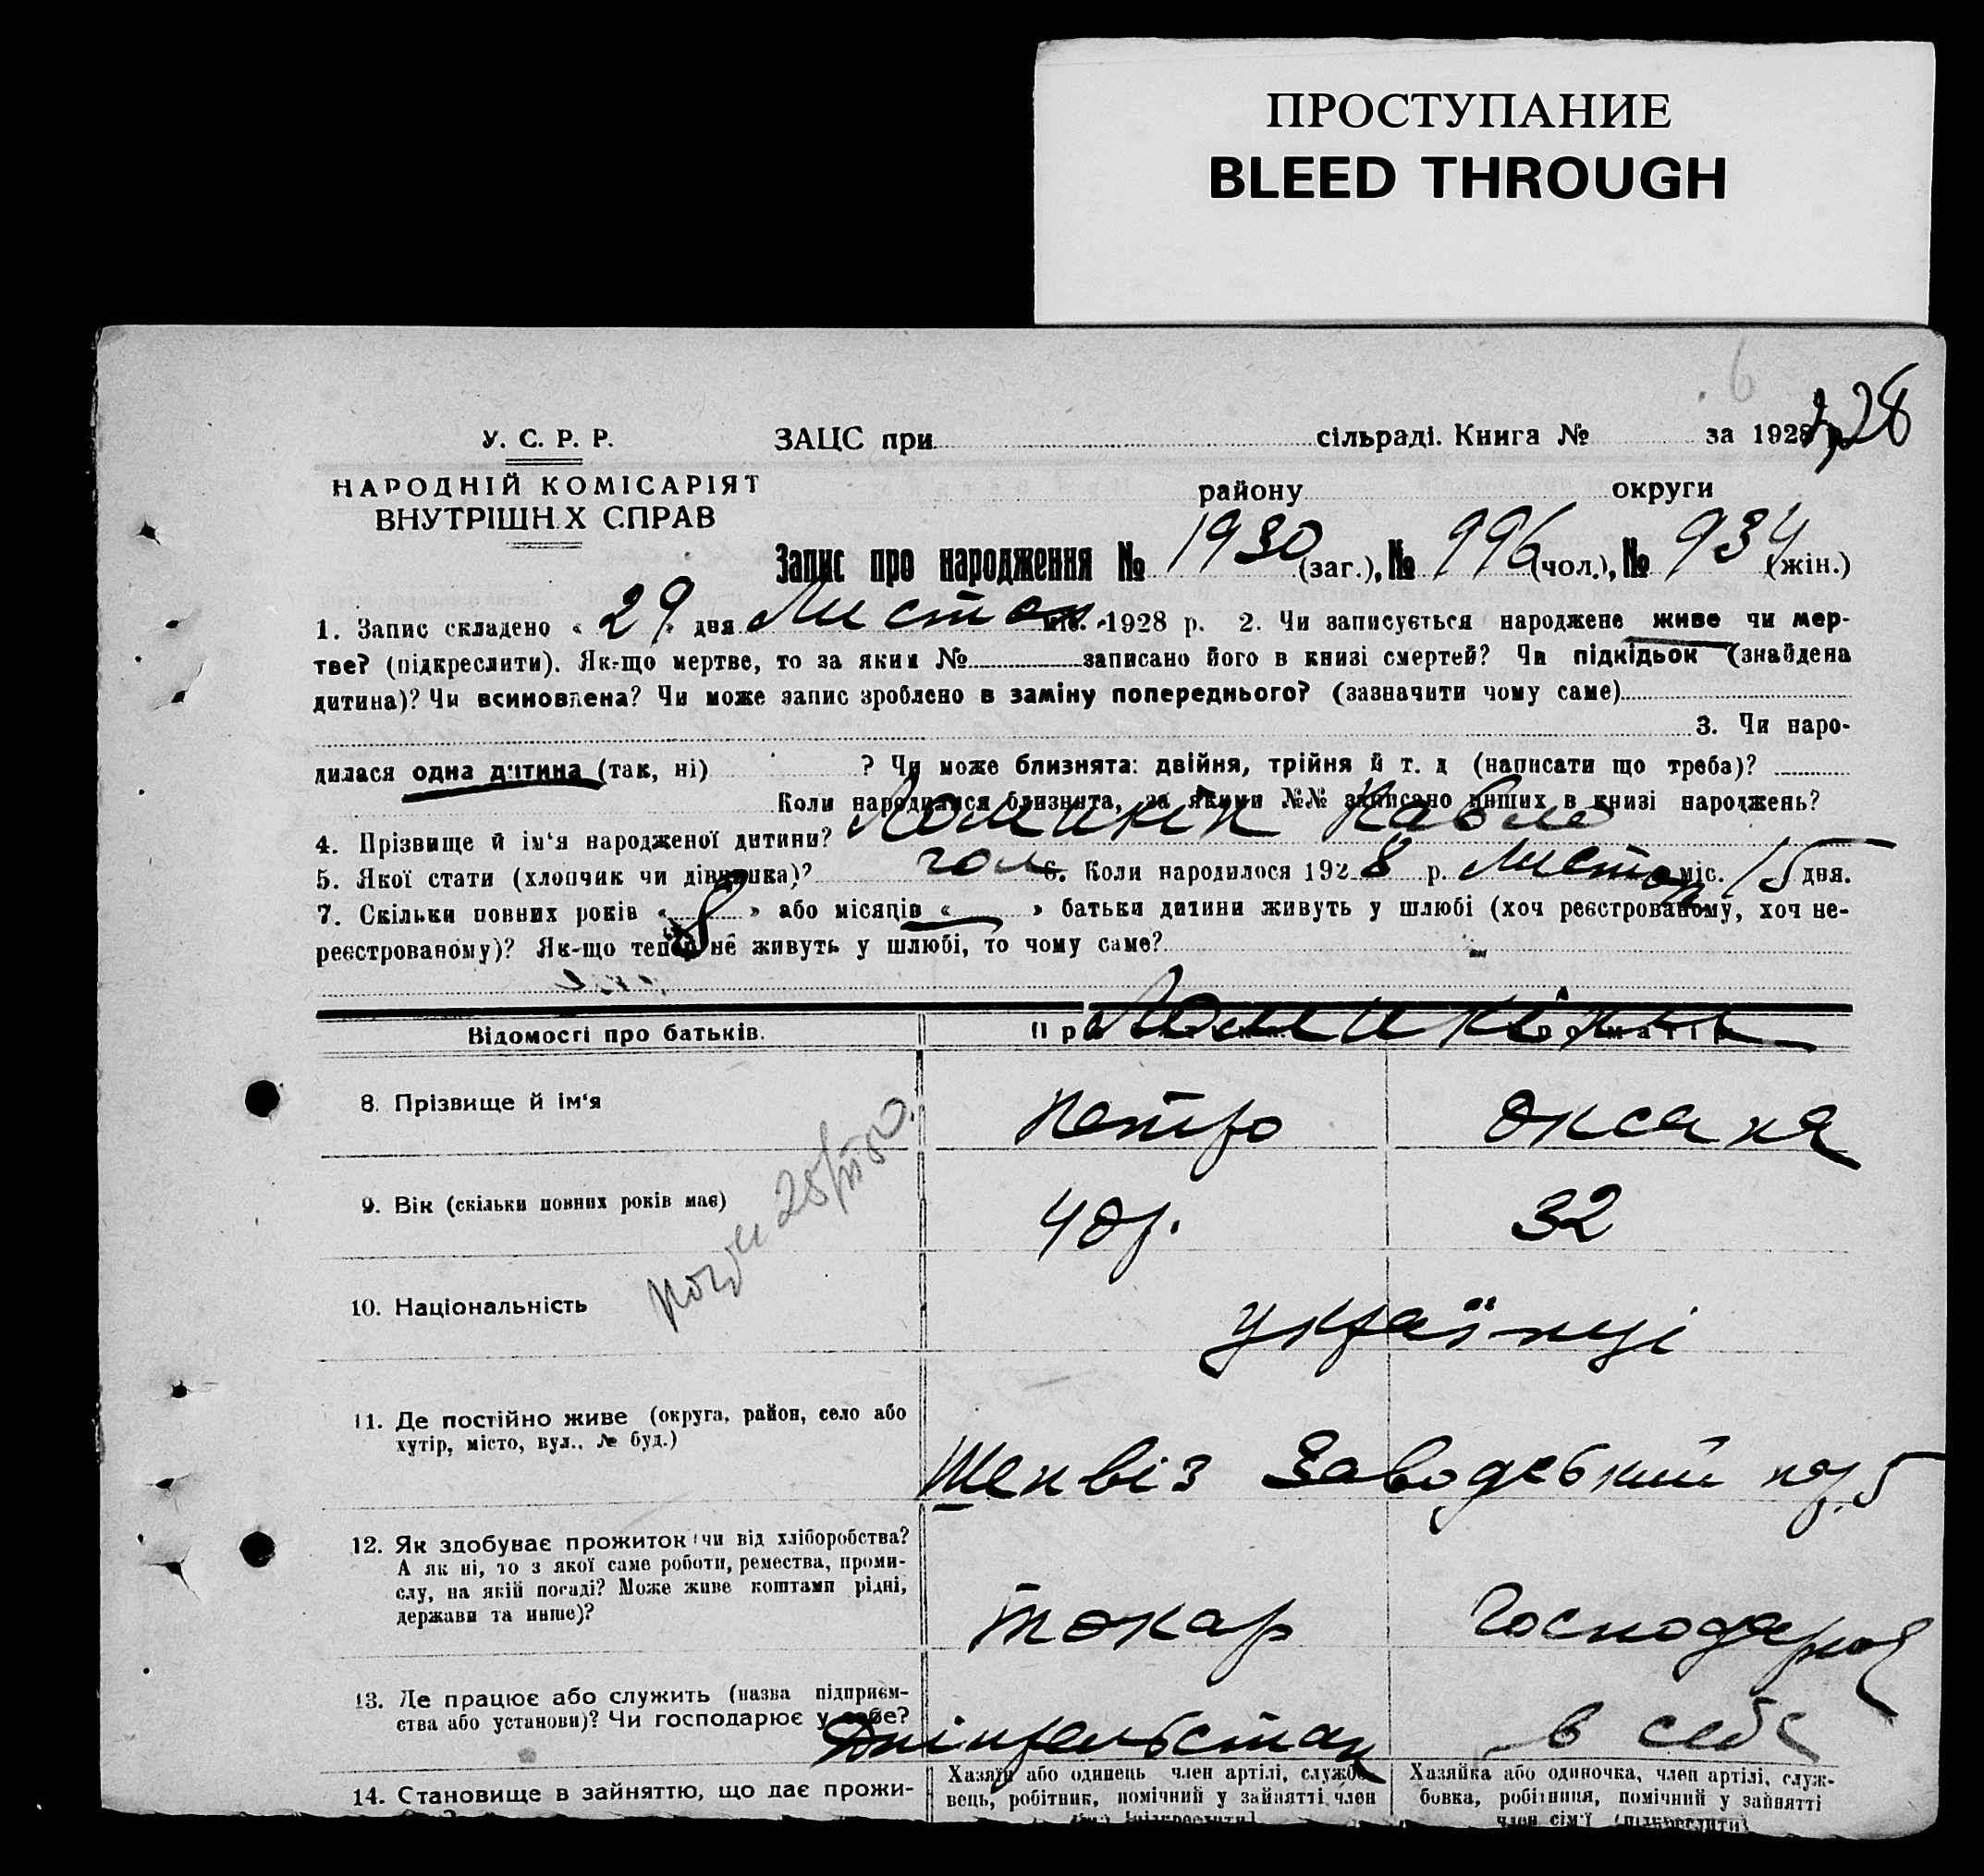 ПРОСТУПАНИЕ
BLEED THROUGH
6
28
У. С. Р. Р.
ЗАЦС при сільраді. Книга № за 1928
НАРОДНІЙ КОМІСАРІЯТ
ВНУТРІШН.Х СПРАВ
району округи
Запис про народження № 1930 (заг.), № 996 (чол.), № 934 (жін.)
1. Запис складено « 29 » дня Листоп міс. 1928 р. 2. Чи записується народжене живе чи мер-
тве? (підкреслити). Як-що мертве, то за яким № записано його в книзі смертей? Чи підкідьок (знайдена
дитина)? Чи всиновлена? Чи може запис зроблено в заміну попереднього? (зазначити чому саме)
3. Чи наро-
дилася одна дитина (так, ні) ? Чи може близнята: двійня, трійня й т. д (написати що треба)?
Коли народилися близнята, за якими №№ записано инших в книзі народжень?
4. Прізвище й ім‘я народженої дитини? Ломикін Павло
5. Якої стати (хлопчик чи дівчинка)? чол 6. Коли народилося 1928 р. Листоп міс. 15 дня.
7. Скільки повних років « 8 » або місяців « — » батьки дитини живуть у шлюбі (хоч реєстрованому, хоч не-
реєстрованому)? Як-що тепер не живуть у шлюбі, то чому саме?
Відомості про батьків. Ломикіни
8. Прізвище й ім‘я Петро Оксана
9. Вік (скільки повних років має) 40р. 32
10. Національність українці
11. Де постійно живе (округа, район, село або
хутір, місто, вул., № буд.)
Шеввіз Заводський 5
12. Як здобуває прожиток (чи від хліборобства?
А як ні, то з якої саме роботи, ремества, проми-
слу, на якій посаді? Може живе коштами рідні,
держави та инше)?
токар господарюе
13. Де працює або служить (назва підприєм-
ства або установи)? Чи господарює у себе?
в себе
14. Становище в зайняттю, що дає прожи-
Хазяїн або одинець член артілі, службо-
вець, робітник, помічний у зайнятті член
сім'ї (підкреслити)
Хазяйка або одиночка, член артілі, служ-
бовка, робітниця, помічний у зайнятті
член сім‘ї (підкреслити)